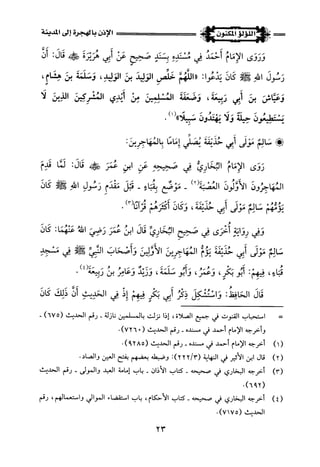 اللؤلؤ المكنون
الإذن بالهجرة إلى المدينة
وَرَوَى الإِمَامُ أَحْمَدُ فِي مُسْنَدِهِ بِسَنَدٍ صَحِيحٍ عَنْ أَبِي هُرَيْرَةَ ﷺ قَالَ: أَنَّ
رَسُولَ اللهِ ﷺ كَانَ يَدْعُوا: «اللَّهُمَّ خَلِّصِ الوَلِيدَ بنَ الوَلِيدِ، وَسَلَمَةَ بنَ هِشَامٍ،
وَعَيَّاشَ بنَ أَبِي رَبِيعَةَ، وَضَعَفَةَ المُسْلِمِينَ مِنْ أَيْدِي المُشْرِكِينَ الذِينَ لَا
يَسْتَطِيعُونَ حِيلَةً وَلَا يَهْتَدُونَ سَبِيلًا»(١).
سَالِمٌ مَوْلَى أَبِي حُذَيْفَةَ يُصَلِّي إِمَامًا بِالمُهَاجِرِينَ:
رَوَى الإِمَامُ البُخَارِيُّ فِي صَحِيحِهِ عَنِ ابنِ عُمَرَ قَالَ: لَمَّا قَدِمَ
المُهَاجِرُونَ الأَوَّلُونَ العُصْبَةَ(٢) - مَوْضِعٌ بِقُبَاءٍ - قَبْلَ مَقْدَمِ رَسُولِ اللهِ ﷺ كَانَ
يَؤُمُّهُمْ سَالِمٌ مَوْلَى أَبِي حُذَيْفَةَ، وَكَانَ أَكْثَرَهُمْ قُرْآنًا(٣).
وَفِي رِوَايَةٍ أُخْرَى فِي صَحِيحِ البُخَارِيِّ قَالَ ابنُ عُمَرَ رَضِيَ اللهُ عَنْهُمَا: كَانَ
سَالِمٌ مَوْلَى أَبِي حُذَيْفَةَ يَؤُمُّ المُهَاجِرِينَ الأَوَّلِينَ وَأَصْحَابَ النَّبِيِّ ﷺ فِي مَسْجِدِ
قُبَاءٍ، فِيهِمْ: أَبُو بَكْرٍ، وَعُمَرُ، وَأَبُو سَلَمَةَ، وَزَيْدٌ وَعَامِرُ بنُ رَبِيعَةَ(٤).
قَالَ الحَافِظُ: وَاسْتُشْكِلَ ذِكْرُ أَبِي بَكْرٍ فِيهِمْ إِذْ فِي الحَدِيثِ أَنَّ ذَلِكَ كَانَ
= استحباب القنوت في جميع الصلاة، إذا نزلت بالمسلمين نازلة - رقم الحديث (٦٧٥) -
وأخرجه الإمام أحمد في مسنده - رقم الحديث (٧٢٦٠).
(١) أخرجه الإمام أحمد في مسنده - رقم الحديث (٩٢٨٥).
(٢) قال ابن الأثير في النهاية (٢٢٢/٣): وضبطه بعضهم بفتح العين والصاد.
(٣) أخرجه البخاري في صحيحه - كتاب الأذان - باب إمامة العبد والمولى - رقم الحديث
(٦٩٢).
(٤) أخرجه البخاري في صحيحه - كتاب الأحكام، باب استقضاء الموالي واستعمالهم، رقم
الحديث (٧١٧٥).
٢٣